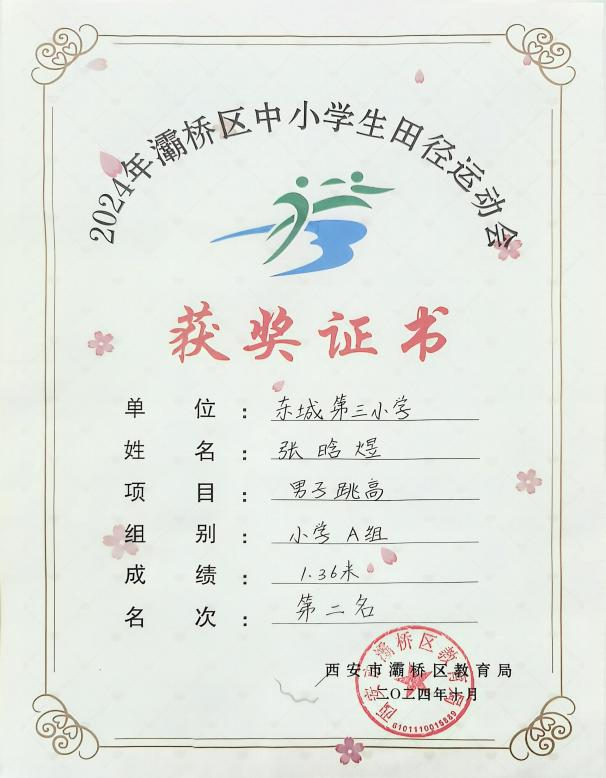 2024年灞桥区中小学生田径运动会
获奖证书
单位：东城第三小学
姓名：张晗煜
项目：男子跳高
组别：小学A组
成绩：1.36米
名次：第二名
西安市灞桥区教育局
二〇二四年十月
西安市灞桥区教育局
6101110015889